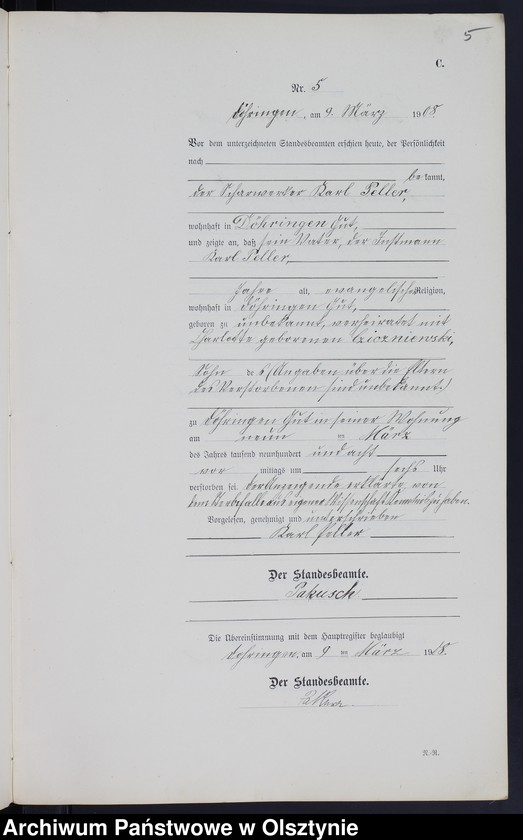 5
C.
Nr. 5
Döhringen, am 9. März 1908.
Vor dem unterzeichneten Standesbeamten erschien heute, der Persönlichkeit
nach
bekannt,
der Scharwerker Karl Peller,
wohnhaft in Döhringen Gut,
und zeigte an, daß sein Vater, der Instmann
Karl Peller,
Jahre alt, evangelischer Religion,
wohnhaft in Döhringen Gut,
geboren zu unbekannt, verheiratet mit
Charlotte geborenen Cziczniewski,
Sohn des (Angaben über die Eltern
des Verstorbenen sind unbekannt.)
zu Döhringen Gut in seiner Wohnung
am neun ten März
des Jahres tausend neunhundert und acht
vor mittags um sechs Uhr
verstorben sei. Der Anzeigende erklärte, von
dem Sterbefalle aus eigener Wissenschaft Kenntnis zu haben.
Vorgelesen, genehmigt und unterschrieben
Karl Peller
Der Standesbeamte.
Pakusch
Die Übereinstimmung mit dem Hauptregister beglaubigt
Döhringen, am 9 ten März 1908.
Der Standesbeamte.
N.-R.
Archiwum Państwowe w Olsztynie